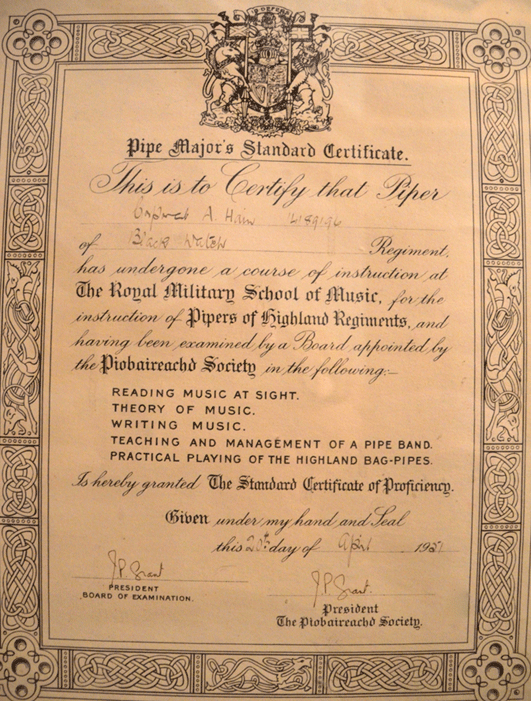 Pipe Major's Standard Certificate.
This is to Certify that Piper
A.
of Black Watch Regiment,
has undergone a course of instruction at
The Royal Military School of Music, for the
instruction of Pipers of Highland Regiments, and
having been examined by a Board appointed by
the Piobaireachd Society in the following:—
READING MUSIC AT SIGHT.
THEORY OF MUSIC.
WRITING MUSIC.
TEACHING AND MANAGEMENT OF A PIPE BAND.
PRACTICAL PLAYING OF THE HIGHLAND BAG-PIPES.
Is hereby granted The Standard Certificate of Proficiency.
Given under my hand and Seal
this 20th day of April 195
J.P. Grant
PRESIDENT
BOARD OF EXAMINATION.
J.P. Grant.
President
The Piobaireachd Society.